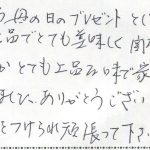 う 母の日のプレゼント とし
上品でとても美味しく 国
か とても上品な味で 家
ました。ありがとうござい
をつけられ 頑張って下さ